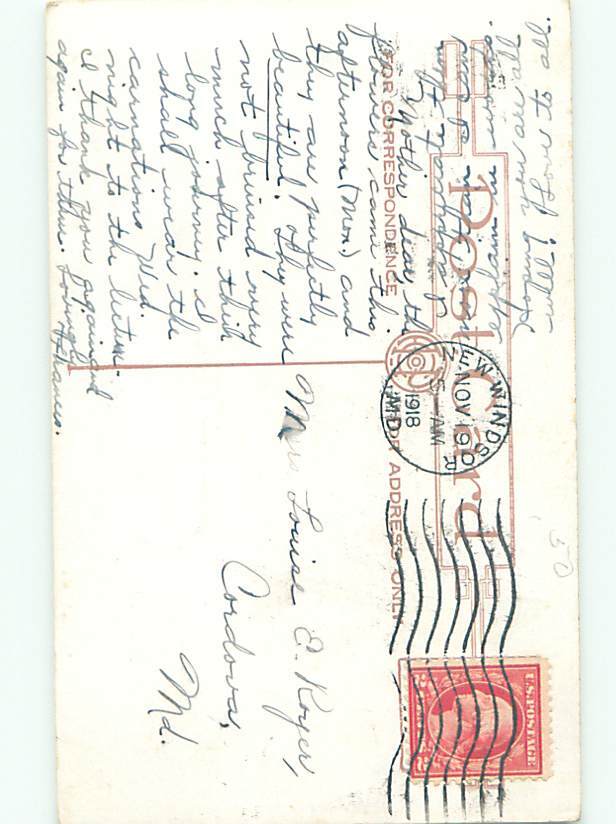 Post Card
FOR CORRESPONDENCE
FOR ADDRESS ONLY
NEW WINDSOR
NOV 19
5-AM
1918
MD.
U.S. POSTAGE
Mother dear the
flowers came this
afternoon (Mon.) and
they are perfectly
beautiful. They were
not bruised very
much after their
long journey. I
shall wear the
carnations Wed.
night to the lecture.
I thank you again and
again for them. Lovingly
Frances.
Mrs Louise E. Royer,
Cordova,
Md.
50